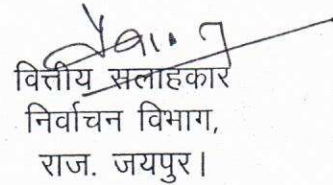 वित्तीय सलाहकार
निर्वाचन विभाग,
राज. जयपुर।